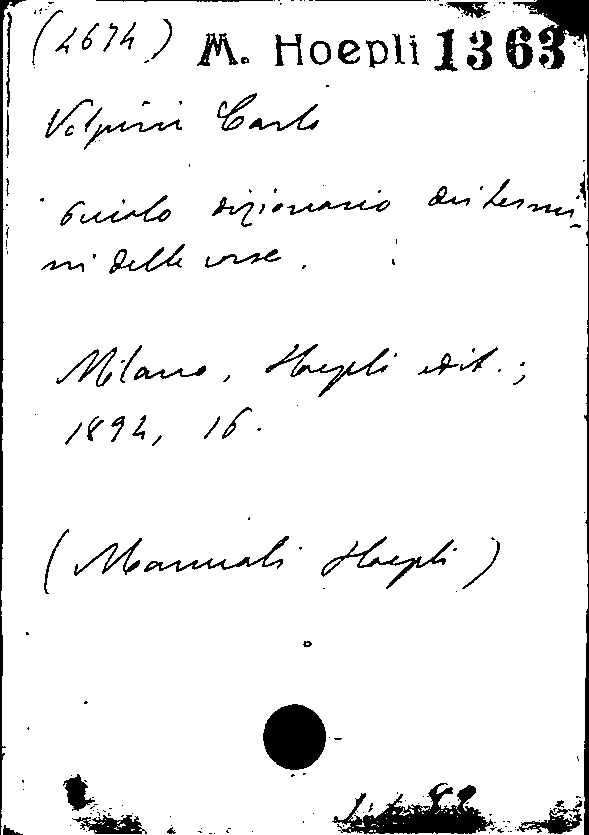 (4674) M. Hoepli 1363
Volpini Carlo
Piccolo dizionario dei termi-
ni delle corse.
Milano, Hoepli edit.;
1894, 16.
(Manuali Hoepli)